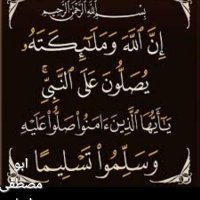 بِسْمِ اللَّهِ الرَّحْمَٰنِ الرَّحِيمِ
إِنَّ اللَّهَ وَمَلَٰئِكَتَهُ
يُصَلُّونَ عَلَى النَّبِيِّ
يَٰأَيُّهَا الَّذِينَ ءَامَنُوا صَلُّوا عَلَيْهِ
وَسَلِّمُوا تَسْلِيمًا
ابو
مصطفى